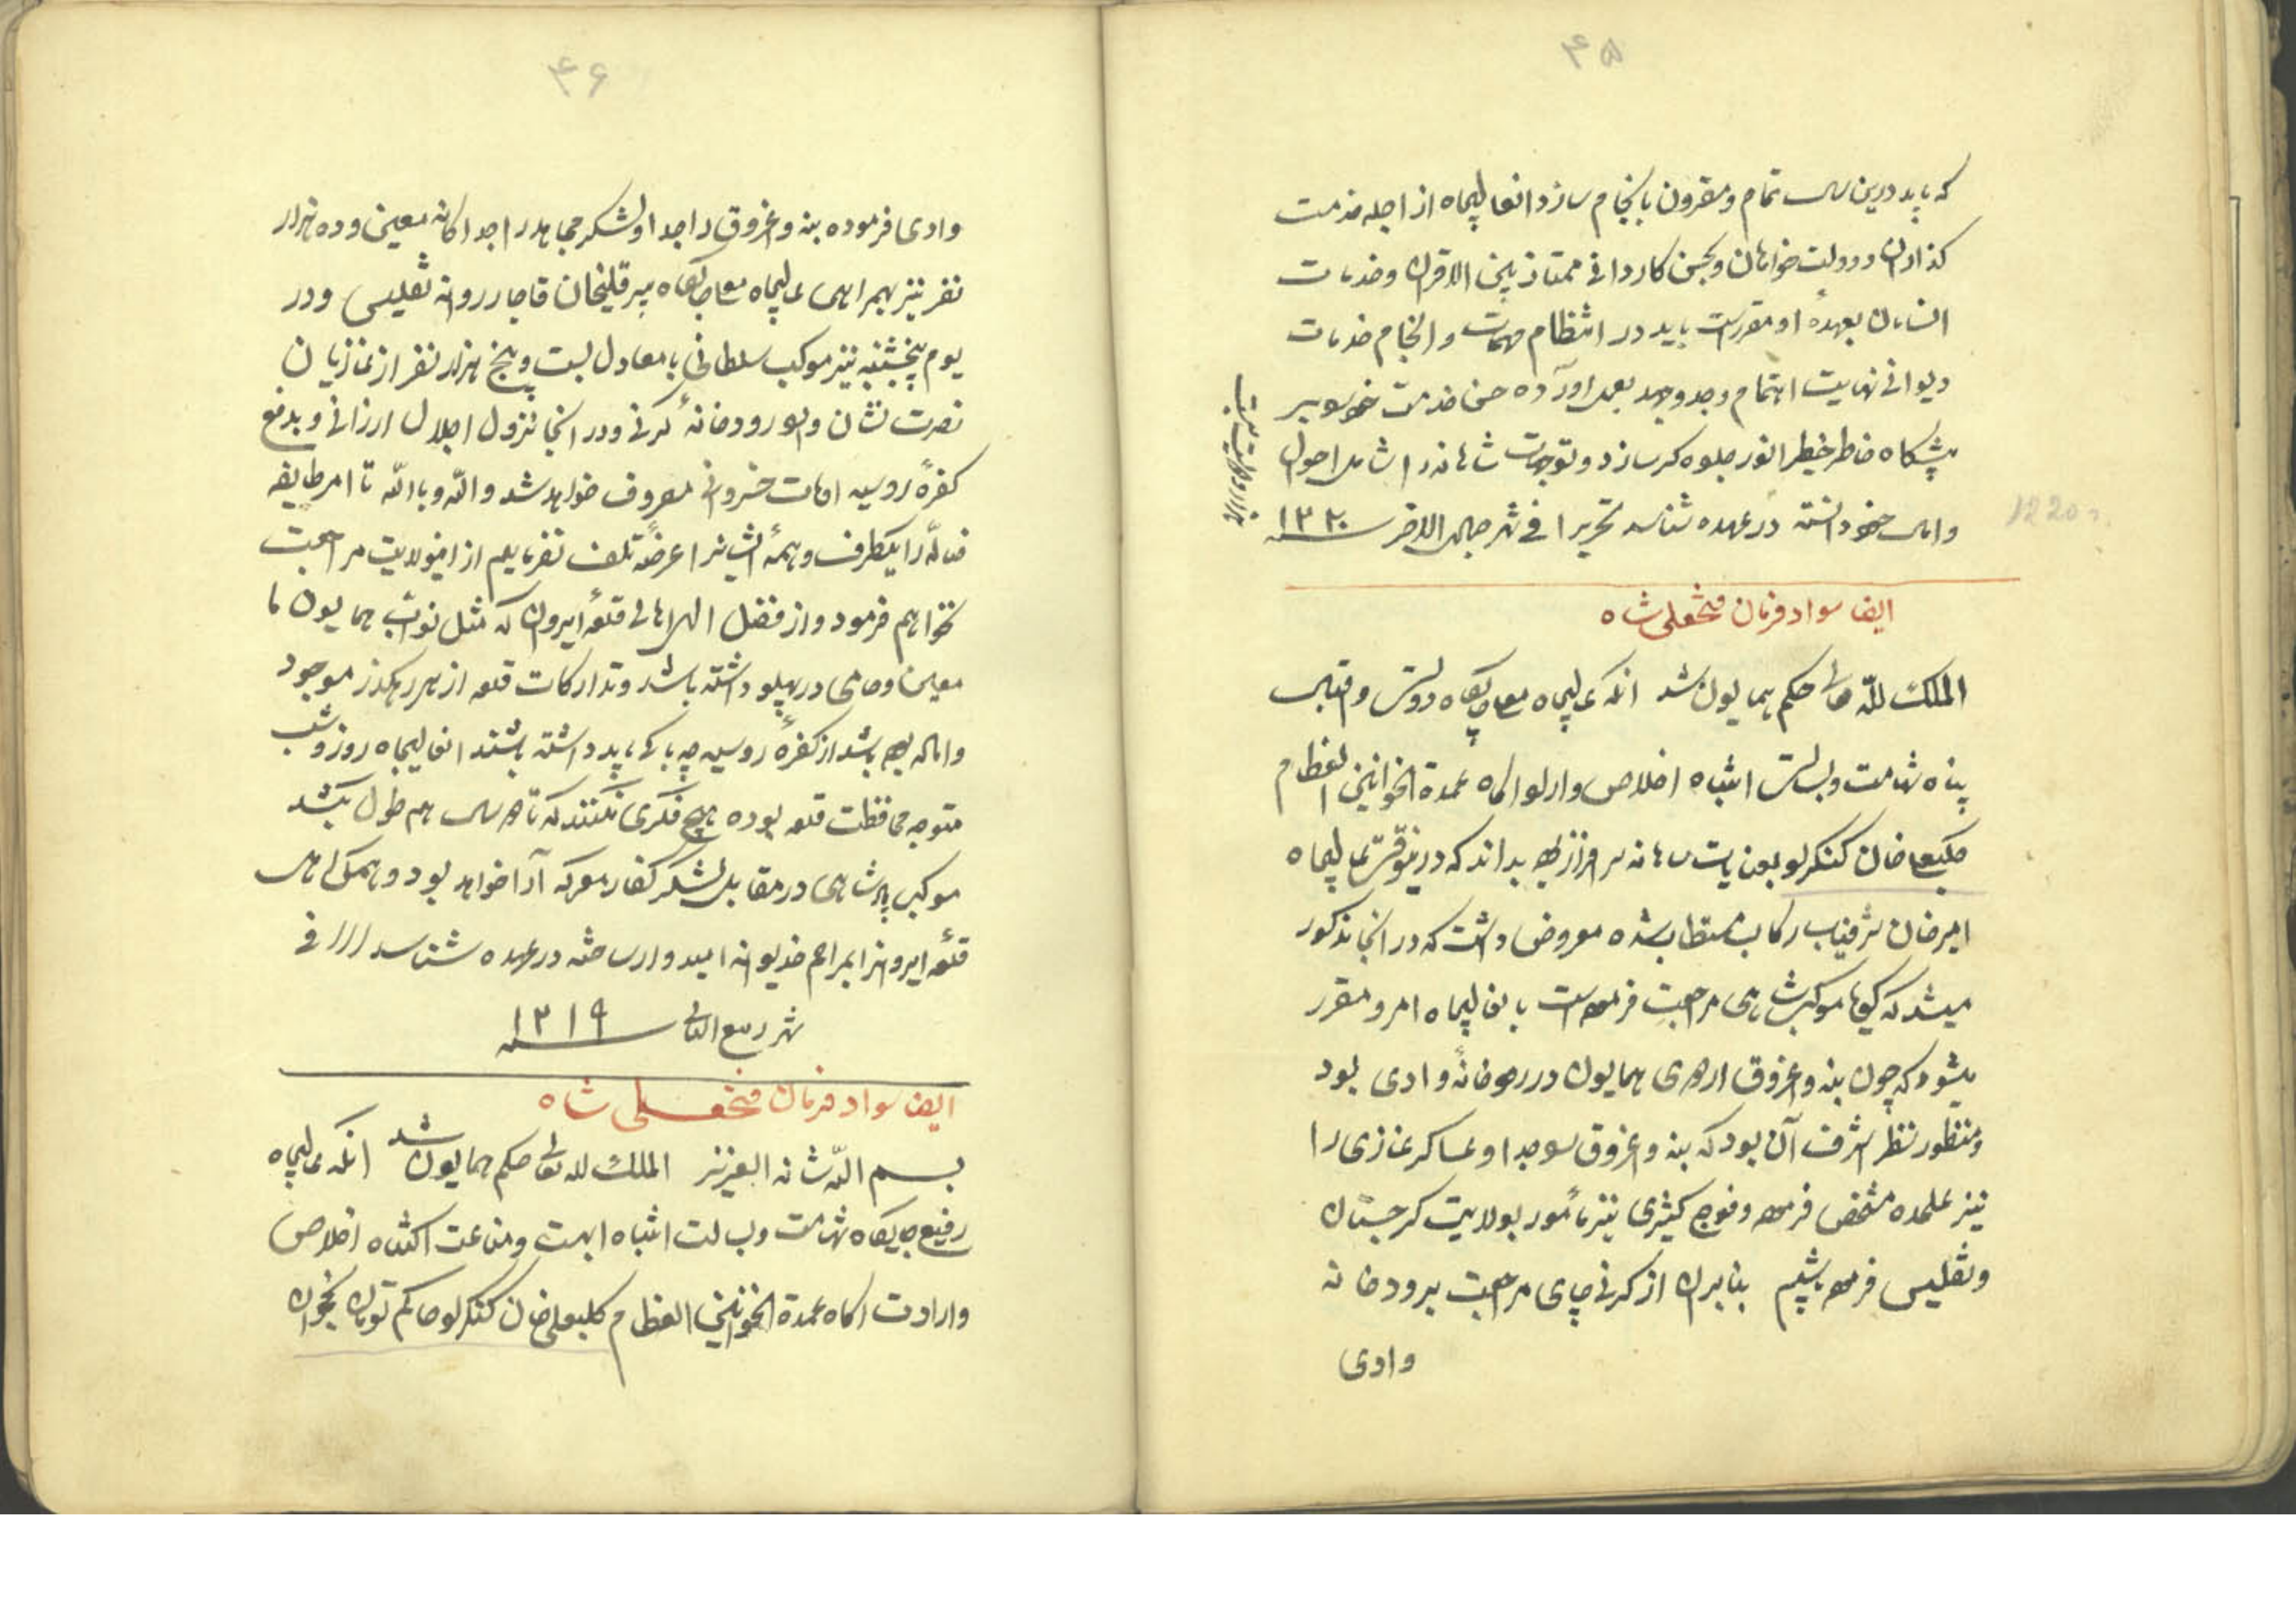 ۴۵
که باید درین سال تمام و مقرون بانجام سازد انعالیجاه از اجله خدمت
گذاران و دولت خواهان و بحسن کاردانی ممتاز بین الاقران و خدمات
انسامان بعهدهٔ او مقررست باید در انتظام مهمات و انجام خدمات
دیوانی نهایت اهتمام و جد و جهد بعمل اورده حسن خدمت خود بر
پیشگاه خاطر خطیر انور جلوه گر سازد و توجهات شاهانه را شامل احوال
و امال خود دانسته در عهده شناسد تحریرا فی شهر جمادی الاخر سنه ۱۲۲۰
1220
ایضا سواد فرمان فتحعلی شاه
الملک لله تعالی حکم همایون شد انکه عالیجاه معلی جایگاه دولت و اقبال
پناه شهامت و بسالت انتباه اخلاص و ارادت اگاه عمدة الخوانین العظام
کلبعلی خان کنگرلو بعنایت شاهانه سرافراز بوده بداند که درینوقت عالیجاه
امیرخان شرفیاب رکاب مستطاب شده معروض داشت که در انجا مذکور
میشد که گویا موکب شاهی مراجعت فرموده است بانعالیجاه امر و مقرر
میشود که چون بنه و اغروق اردوی همایون در رودخانهٔ وادی بود
و منظور نظر اشرف آن بود که بنه و اغروق سوجدا و عساکر غازی را
نیز علیحده مشخص فرموده و فوج کثیری نیز مأمور بولایت گرجستان
و تفلیس فرموده باشیم بنابران از گرنی چای مراجعت برودخانه
وادی
۴۶
وادی فرموده بنه و اغروق را جدا و لشکر مجاهد را جداگانه معین و ده هزار
نفر نیز بهمراهی عالیجاه معلی جایگاه پیرقلیخان قاجار روانه تفلیس و در
یوم پنجشنبه نیز موکب سلطانی با معادل بیست و پنج هزار نفر از غازیان
نصرت نشان وارد رودخانهٔ گرنی و در انجا نزول اجلال ارزانی و بدفع
کفرهٔ روسیه اوقات خسروانی مصروف خواهد شد والله و بالله تا امر طایفه
ضاله را یکطرف و همهٔ ایشانرا عرضهٔ تلف نفرماییم از اینولایت مراجعت
نخواهیم فرمود و از فضل الهی اهالی قلعهٔ ایروان که مثل نواب همایون ما
معین و حامی در پهلو داشته باشد و تدارکات قلعه از هر رهگذر موجود
و اماده بوده باشد از کفرهٔ روسیه چه باک باید داشته باشند انعالیجاه روز و شب
متوجه محافظت قلعه بوده هیچ فکری نکنند که تا ده سال هم طول بکشد
موکب پادشاهی در مقابل لشکر کفار معرکه آرا خواهد بود و همگی اهالی
قلعهٔ ایروانرا بمراحم خدیوانه امیدوار ساخته در عهده شناسد /// فی
شهر ربیع الثانی سنه ۱۲۱۹
ایضا سواد فرمان فتحعلی شاه
بسم الله شانه العزیز الملک لله تعالی حکم همایون شد انکه عالیجاه
رفیع جایگاه شهامت و بسالت انتباه ابهت و مناعت اکتناه اخلاص
و ارادت اگاه عمدة الخوانین العظام کلبعلی خان کنگرلو حاکم تومان نخجوان